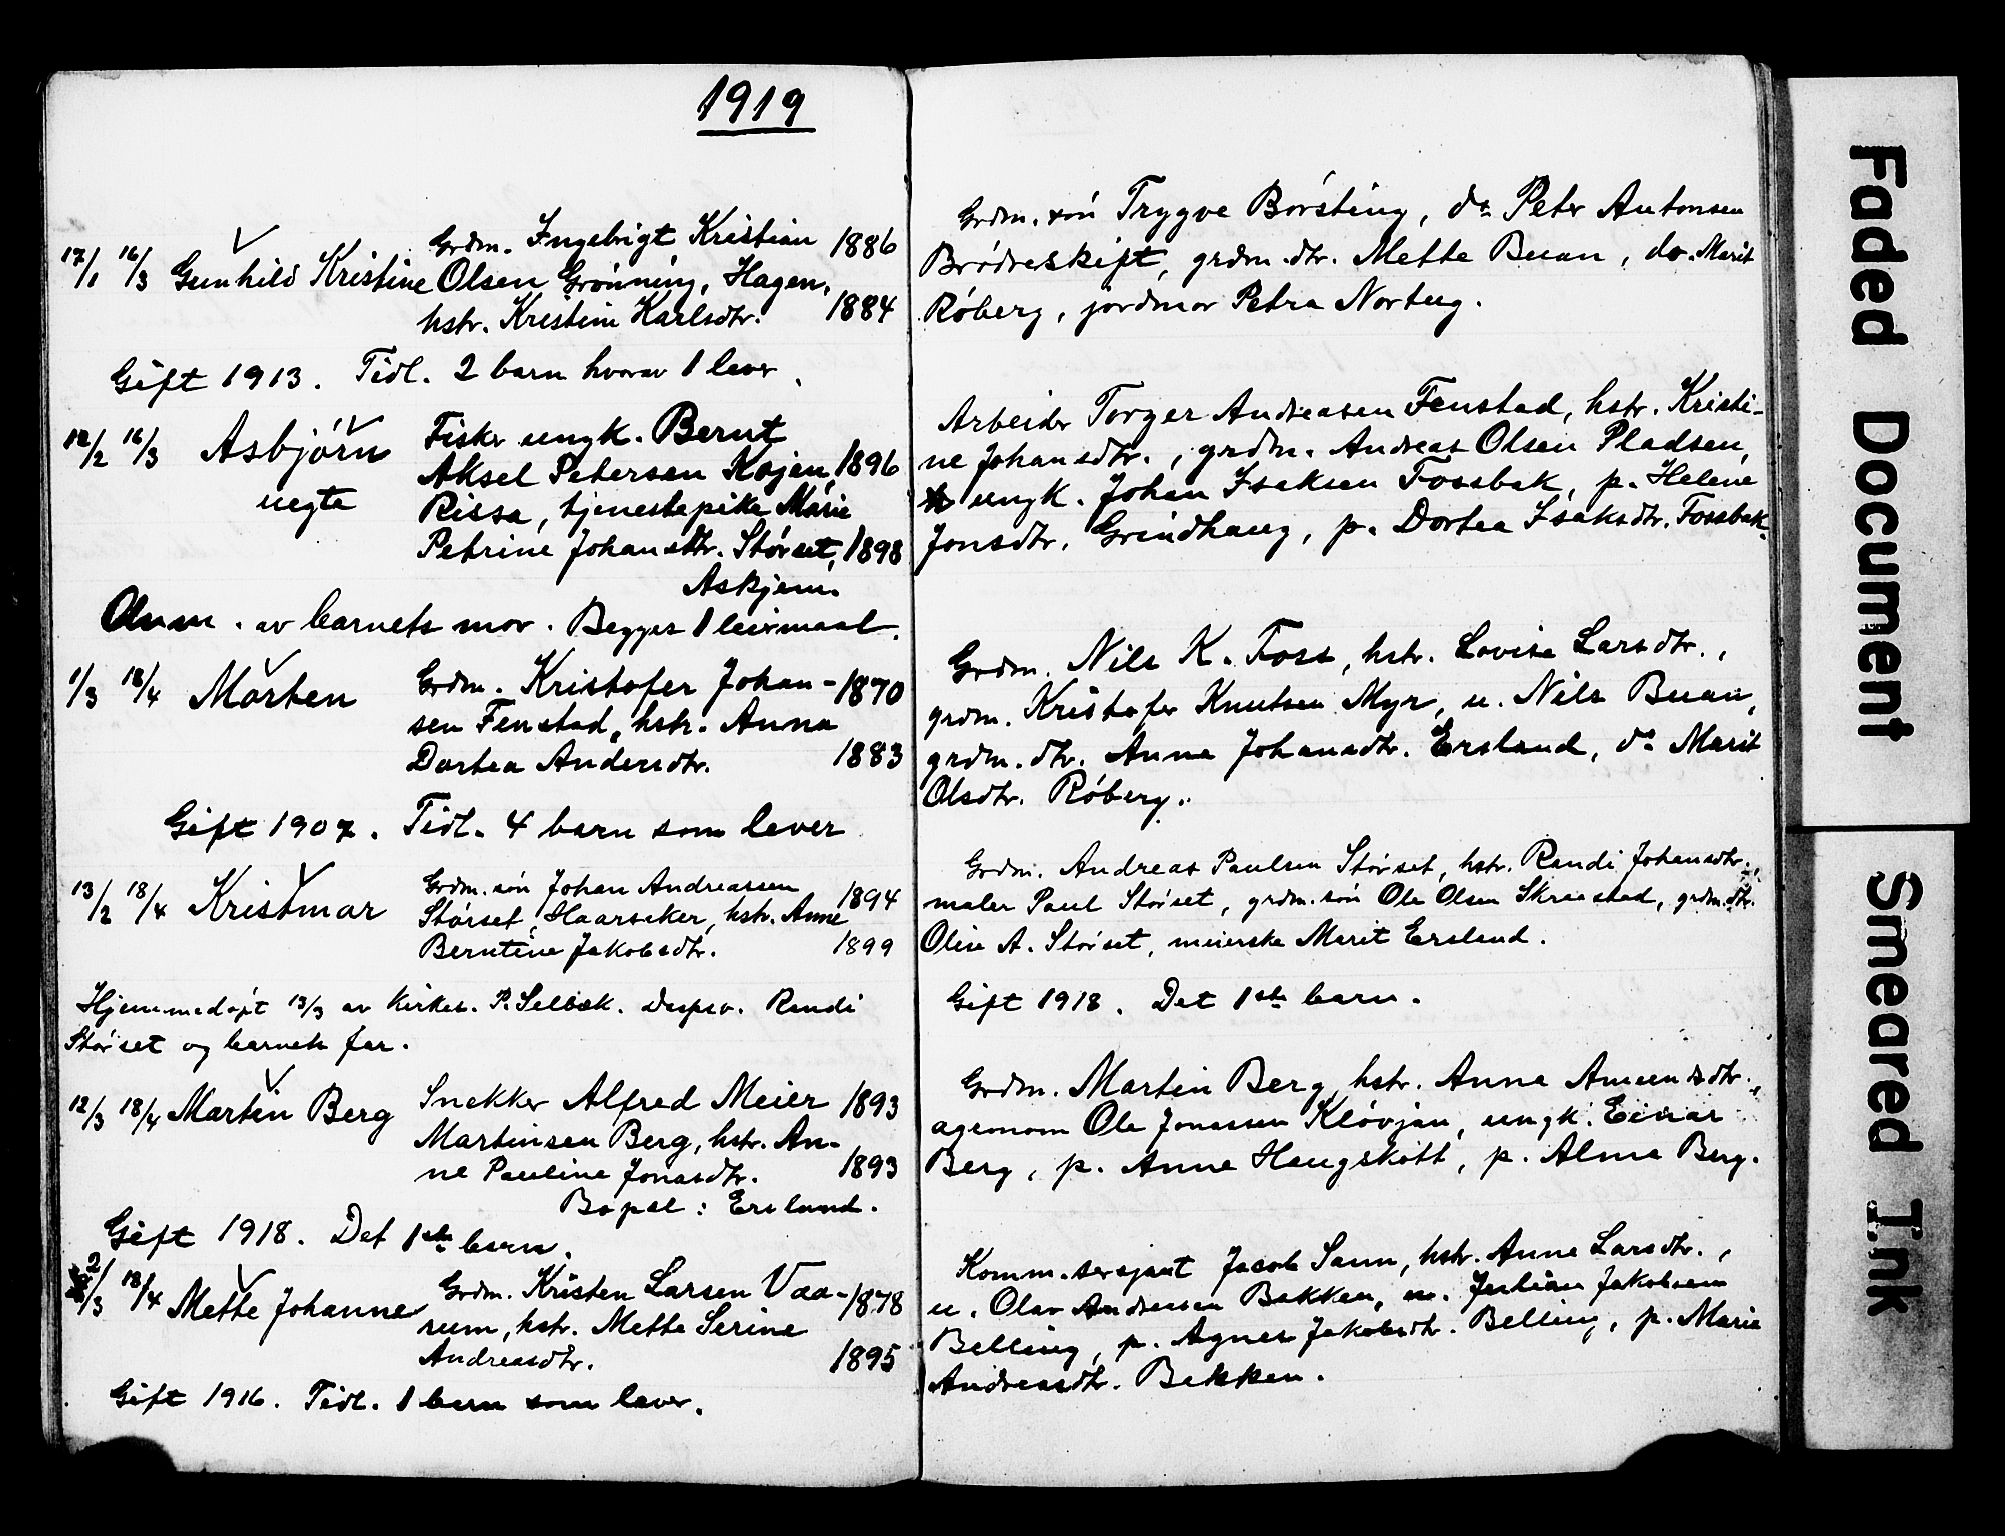 1919
17/1 16/3 Gunhild Kristine Grdm. Ingebrigt Kristian 1886
Olsen Grønning, Hagen,
hstr. Kristine Karlsdtr. 1884
Gift 1913. Tidl. 2 barn hvorav 1 lever.
12/2 16/3 Asbjørn Fisker ungk. Bernt
uegte Aksel Petersen Kojen, 1896
Rissa, tjenestepike Marie
Petrine Johansdtr. Størset, 1898
Askjem.
Anm. av barnets mor. Begges 1 leiermaal.
1/3 18/4 Morten Grdm. Kristofer Johan- 1870
sen Fenstad, hstr. Anna
Dortea Andersdtr. 1883
Gift 1907. Tidl. 4 barn som lever
13/2 18/4 Kristmar Grdm. søn Johan Andreassen 1894
Størset, Haarseker, hstr. Anne
Berntine Jakobsdtr. 1899
Hjemmedøpt 13/3 av kirkes. P. Selbæk. Daapsv. Randi
Størset og barnets far.
12/3 18/4 Martin Berg Snekker Alfred Meier 1893
Martinsen Berg, hstr. An-
ne Pauline Jonasdtr. 1893
Bopæl: Ersland.
Gift 1918. Det 1ste barn.
2/3 18/4 Mette Johanne Grdm. Kristen Larsen Vaa- 1878
rum, hstr. Mette Serine
Andreasdtr. 1895
Gift 1916. Tidl. 1 barn som lever.
Grdm. søn Trygve Børsting, do Peter Antonsen
Brødreskift, grdm. dtr. Mette Buan, do. Marit
Røberg, jordmor Petra Nortug.
Arbeider Torger Andreasen Fenstad, hstr. Kristi-
ne Johansdtr., grdm. Andreas Olsen Pladsen,
ungk. Johan Isaksen Fossbak, p. Helene
Jonsdtr. Grindhaug, p. Dortea Isaksdtr. Fossbak.
Grdm. Nils K. Foss, hstr. Lovise Larsdtr.,
grdm. Kristofer Knutsen Myr, u. Nils Buan,
grdm. dtr. Anna Johansdtr. Ersland, do Marit
Olsdtr. Røberg.
Grdm. Andreas Paulsen Størset, hstr. Randi Johansdtr.,
maler Paul Størset, grdm. søn Ole Olsen Skraastad, grdm. dtr.
Oline A. Størset, meierske Marit Ersland.
Gift 1918. Det 1ste barn.
Grdm. Martin Berg, hstr. Anna Amundsdtr.,
agronom Ole Jonassen Kløvjan, ungk. Einar
Berg, p. Anne Haugskott, p. Alma Berg.
Komm. sersjant Jacob Sann, hstr. Anne Larsdtr.,
u. Olav Andreasen Bakken, u. Julian Jakobsen
Belling, p. Agnes Jakobsdtr. Belling, p. Marie
Andreasdtr. Bekken.
Faded Document
Smeared Ink